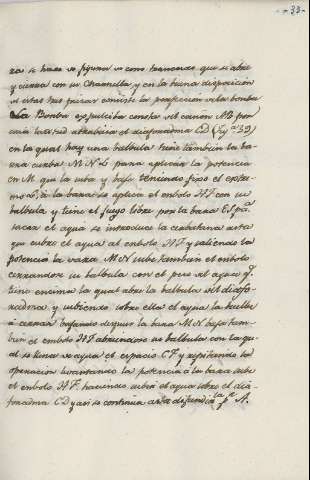 -33-
za se hace de figura de como trancado que se abre
y cierra con su charnella y en la buena disposicion
de estas tres piezas consiste la perfeccion de la bomba
La Bomba expulciba consta del cañon AB por
en la qual hay una balbula tiene tambien la ba-
rra curba M N L para aplicar la potencia
en M. que la suba y baje teniendo fixo el extre-
mo L, à la bara se aplica el embolo H F con su
balbula y tiene el juego libre por la bara E F para
sacar el agua se introduce la caabana asta
que cubre el agua al embolo H F y saliendo la
potencia la bara M N sube tambien el embolo
cerrandose su balbula con el peso del agua qe
tiene encima la qual abre la balbula del diafo-
racma y subiendo sobre ella el agua la buelbe
à cerrar bajando despues la bara M N baja tam-
bien el embolo H F abriendose su balbula con la qu
al se llena de agua el espacio C F y repitiendo la
operacion lebantando la potencia à la bara sube
el embolo H F. haciendo subir el agua sobre el dia-
foracma C D y asi se continua asta difundirla pr A.